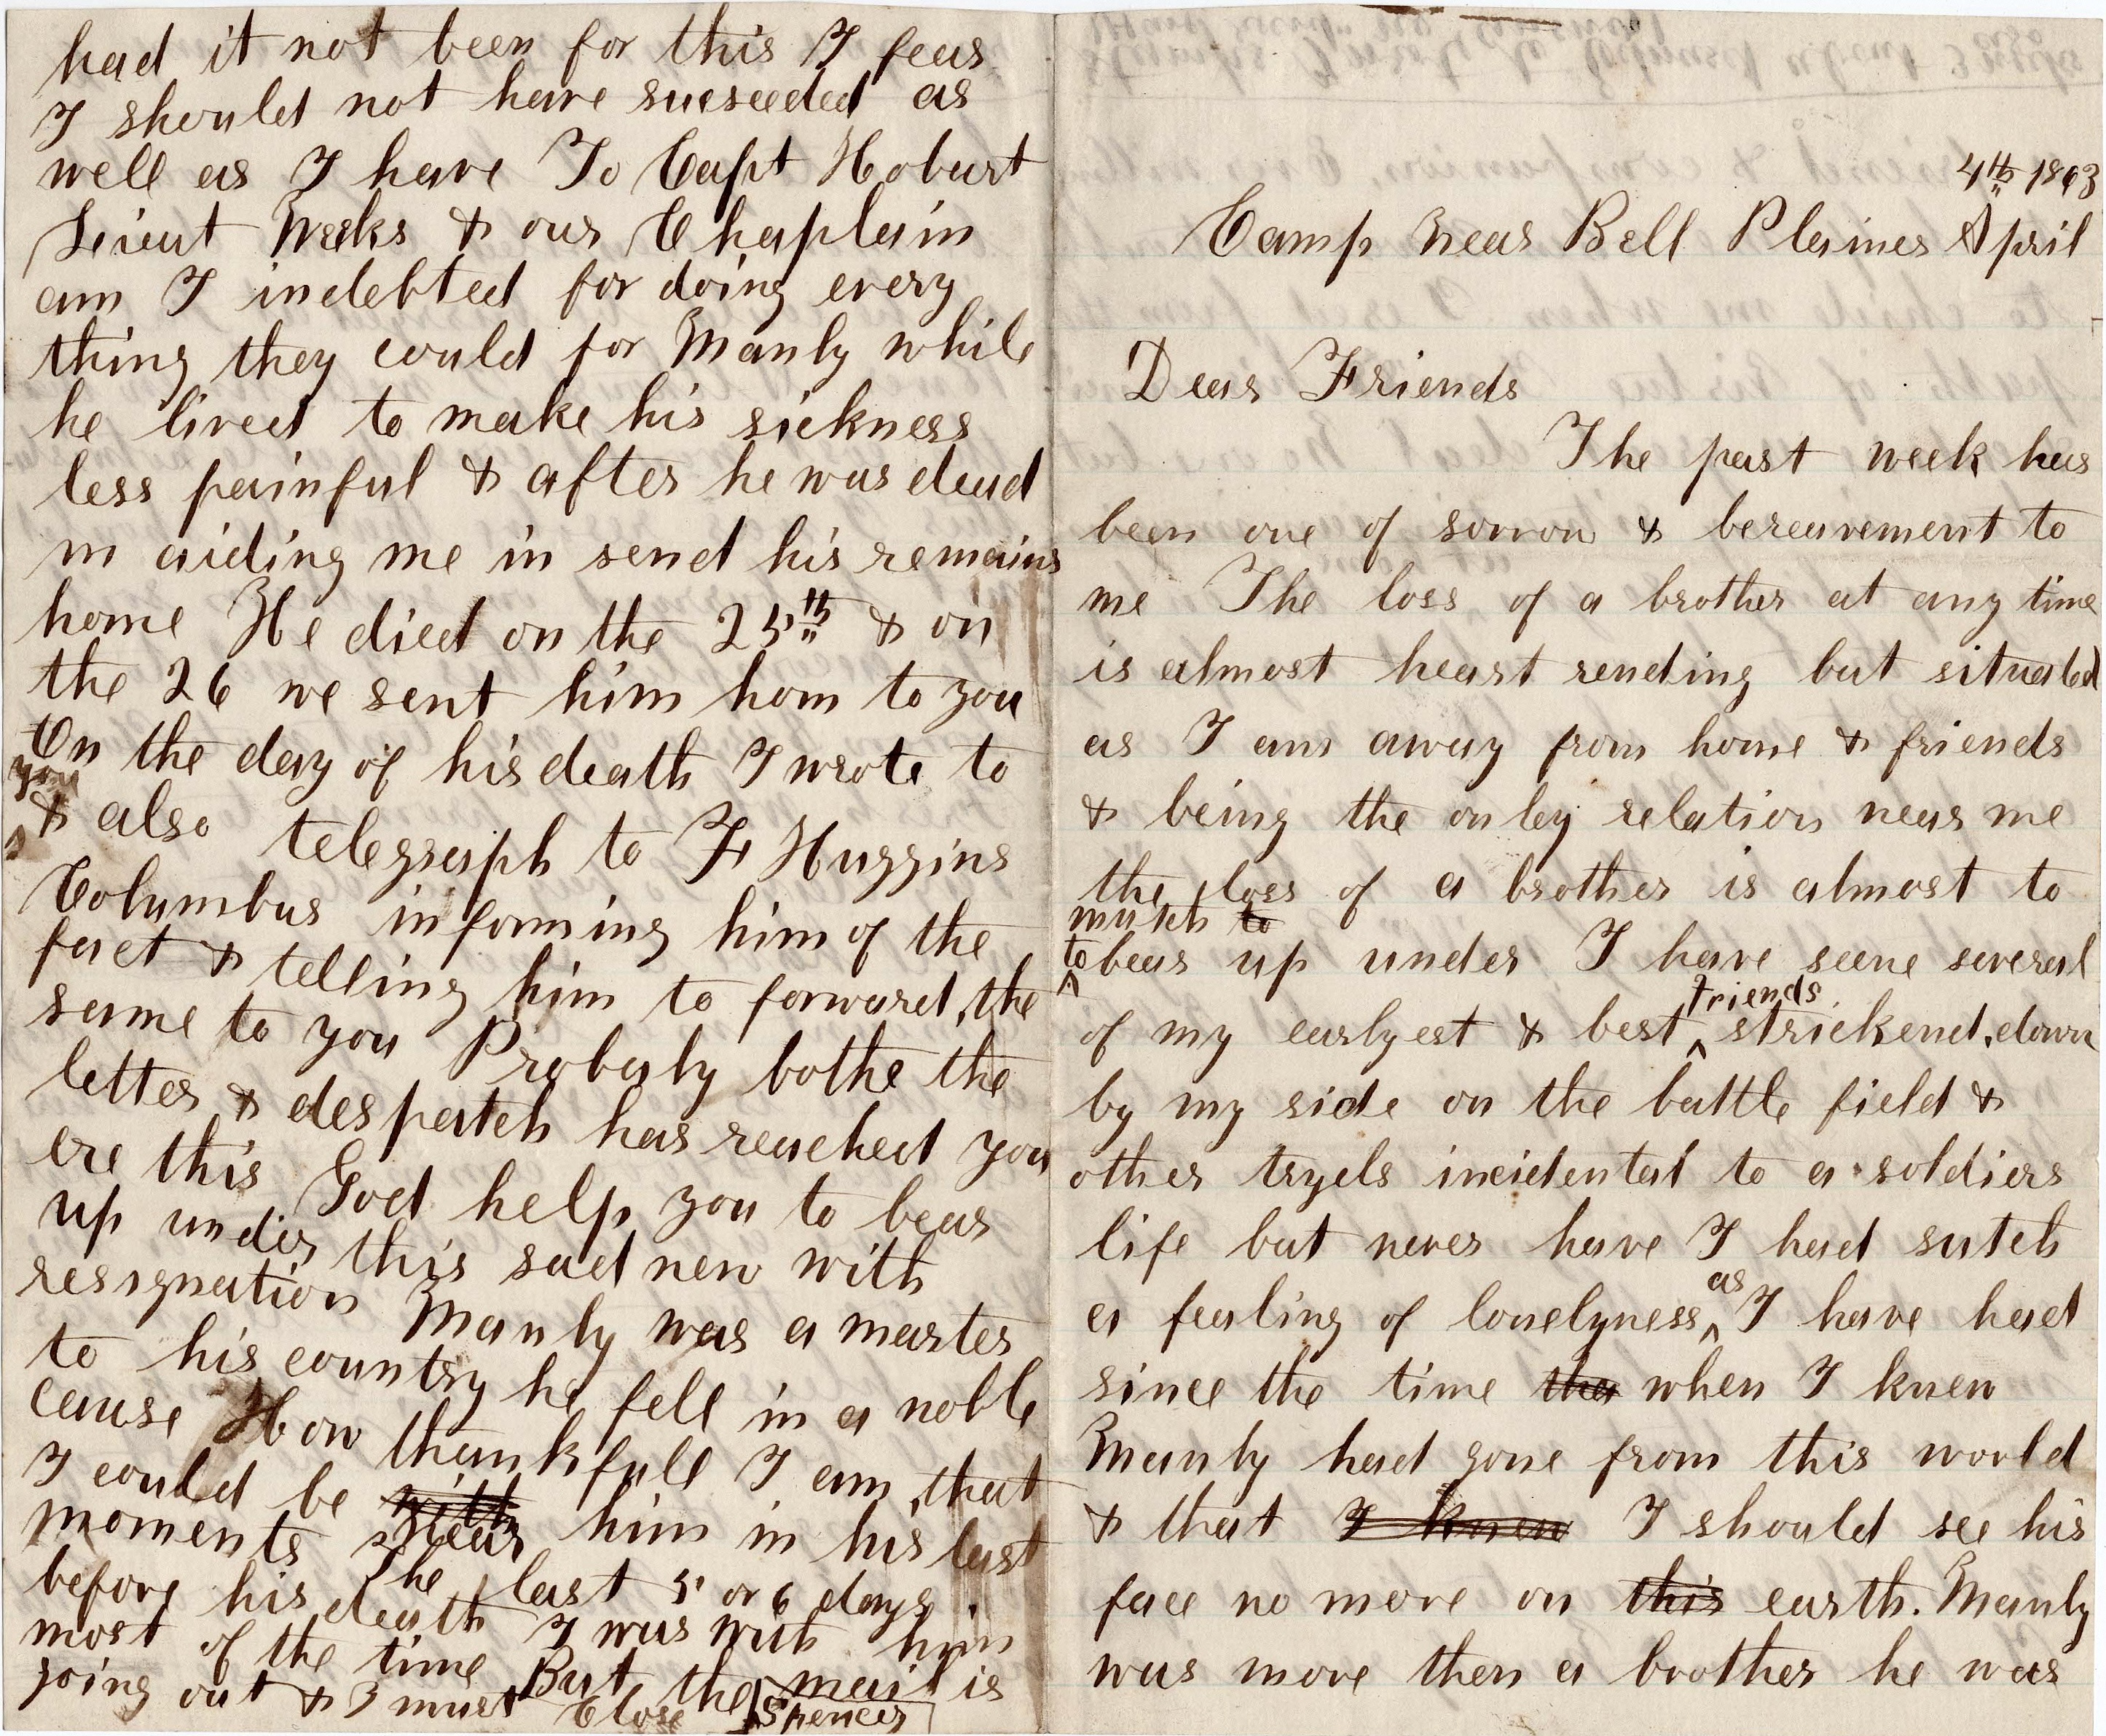 4th 1863
Camp Near Bell Plaines April
Dear Friends
The past week has
been one of sorrow & bereavement to
me The loss of a brother at any time
is almost heart rending but situated
as I am away from home & friends
& being the onley relation near me
the loss of a brother is almost to
mutch to
to bear up under I have seene several
of my earlyest & best friends strickend down
by my side on the battle field &
other tryels incidental to a soldiers
life but never have I had sutch
a fealing of lonelyness as I have had
since the time that when I knew
Manly had gone from this world
& that I knew I should see his
face no more on this earth. Manly
was more then a brother he was
had it not been for this I fear
I should not have sucseeded as
well as I have To Capt Hobart
Leieut Weeks & our Chaplain
am I indebted for doing every
thing they could for Manly while
he lived to make his sickness
less painful & after he was dead
in aiding me in send his remains
home He died on the 25th & on
the 26 we sent him hom to you
On the day of his death I wrote to
you
& also telegraph to F Huggins
Columbus informing him of the
fact & telling him to forward the
same to you Probarly bothe the
letter & despatch has reached you
ere this God help you to bear
up under this sad new with
resignation Manly was a marter
to his country he fell in a noble
cause How thankfull I am that
I could be with near him in his last
moments The last 5 or 6 days
before his death I was with him
most of the time But the mail is
going out & I must Close Spencer